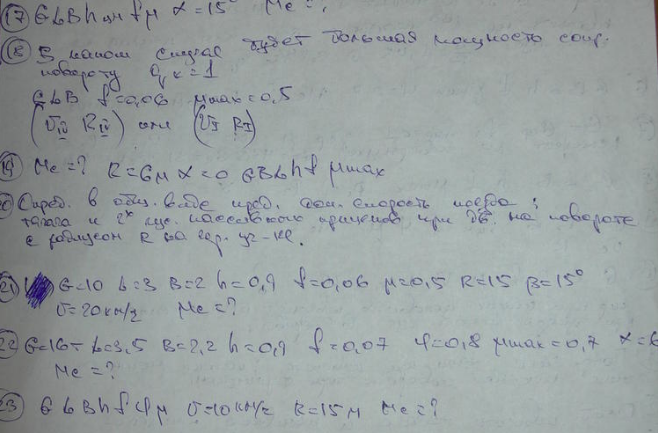 17 G L B h цн f μ α = 15° Mc = ?
18 В каком случае будет большая мощность сопр.
повороту a, к = 1
G L B f = 0,06 μmax = 0,5
(V IV R IV) или (V I R I)
19 Mc = ? R = 6м α = 0 G B L h f μmax
20 Опред. в общ. виде пред. доп. скорость поезда:
тягача и 2х пассивных прицепов при дв. на повороте
с радиусом R на гор. уч-ке.
21 G = 10 L = 3 B = 2 h = 0,9 f = 0,06 μ = 0,5 R = 15 β = 15°
V = 20 км/ч Mc = ?
22 G = 16т L = 3,5 B = 2,2 h = 0,9 f = 0,07 φ = 0,8 μmax = 0,7 α =
Mc = ?
23 G L B h f φ μ V = 10 км/ч R = 15 м Mc = ?